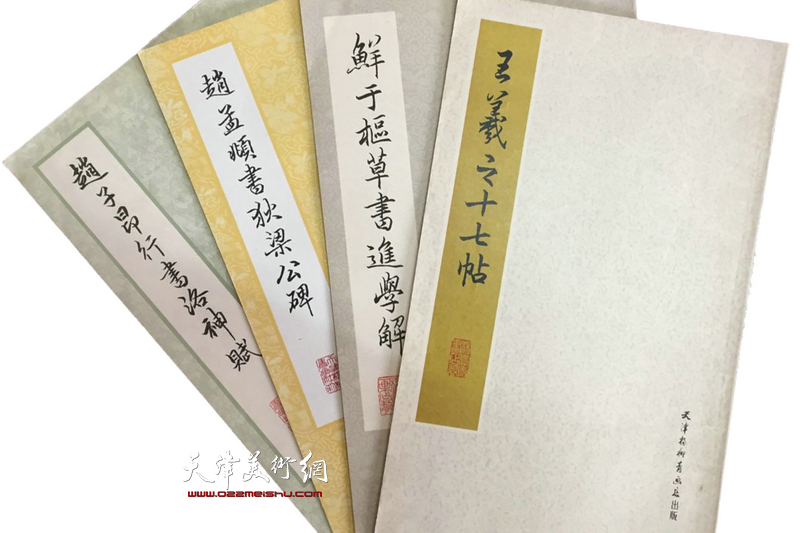 王羲之十七帖
天津杨柳青画店出版
鮮于樞草書進學解
趙孟頫書狄梁公碑
趙子昂行書洛神賦
天津美術網
www.022meishu.com